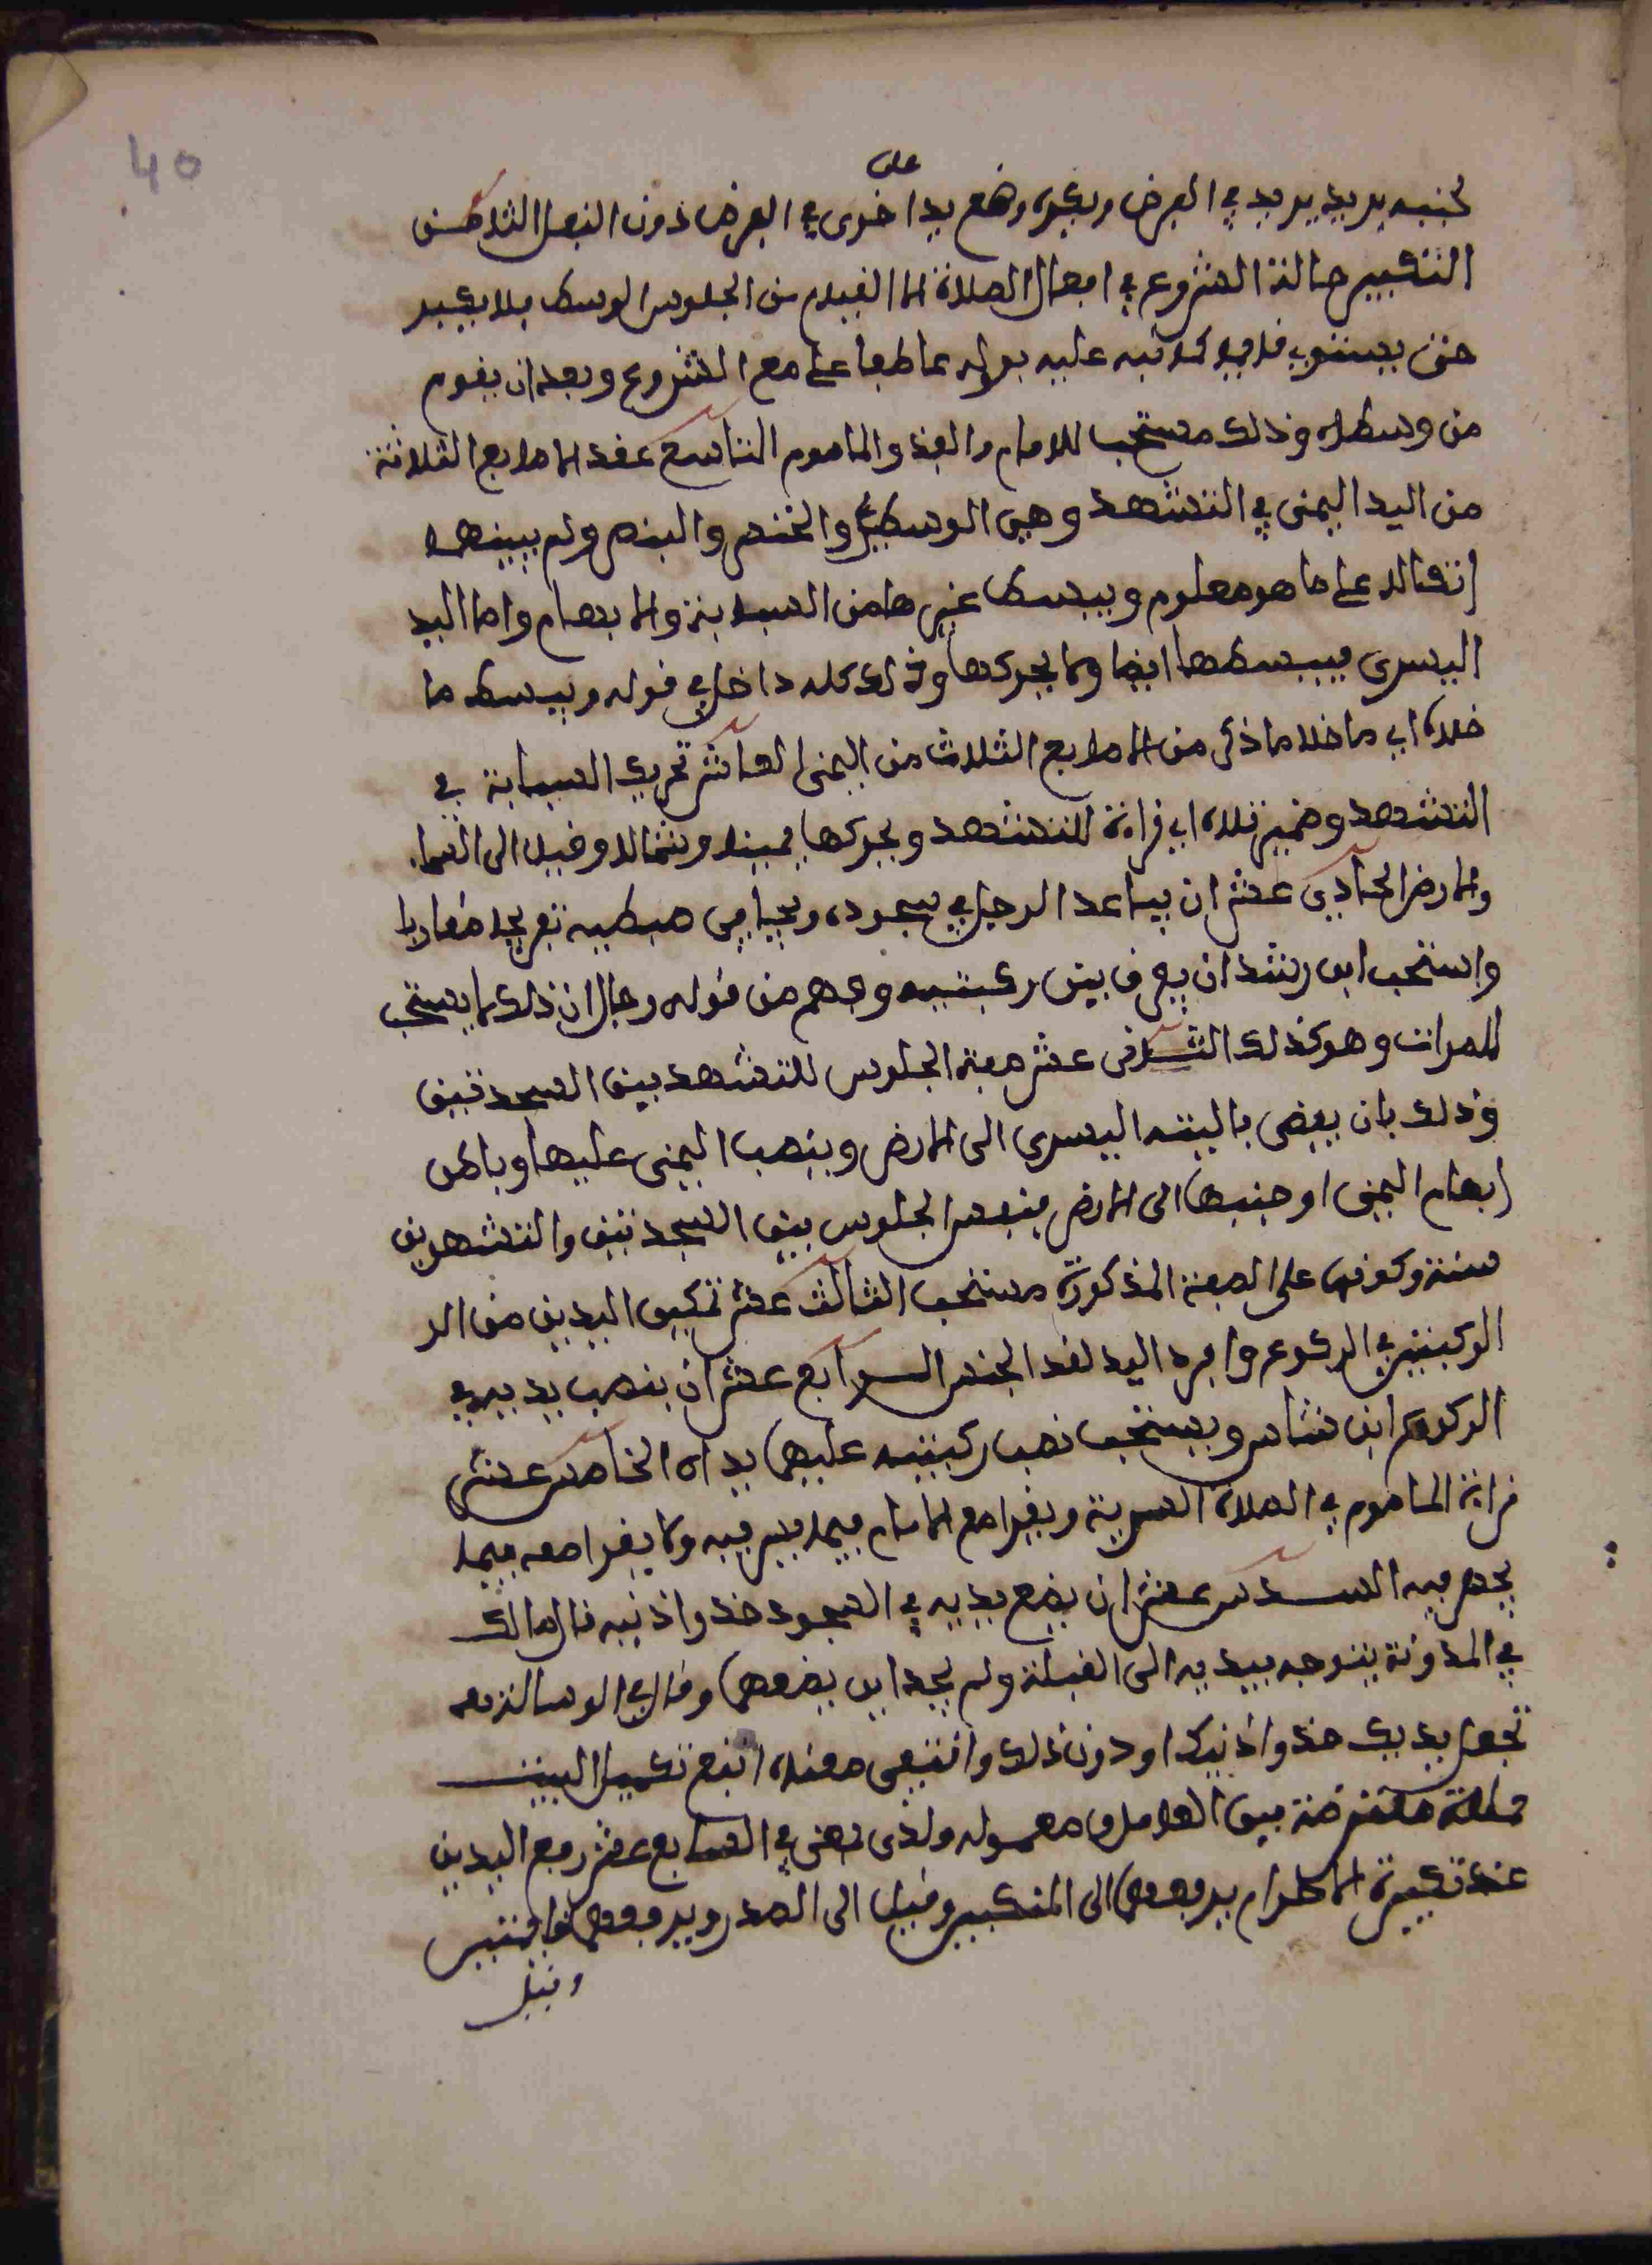 40
على
لجنبيه يريد يديه في الفرض ويكره وضع يد اخرى في الفرض دون النفل الثامن
التكبير حالة الشروع في افعال الصلاة الا القيام من الجلوس الوسط فلا يكبر
حتى يستوي قايما كما نبه عليه بقوله عاطفا على مع الشروع وبعد ان يقوم
من وسطاه وذلك مستحب للامام والفذ والماموم التاسع عقد الاصابع الثلاثة
من اليد اليمنى في التشهد وهي الوسطى والخنصر والبنصر ولم يبينها
اتكالا على ما هو معلوم ويبسط غيرها من السبابة والابهام واما اليد
اليسرى فيبسطها ايضا ولا يحركها وذلك كله داخل في قوله ويبسط ما
خلاه اي ما خلا ما ذكر من الاصابع الثلاث من اليمنى العاشر تحريك السبابة في
التشهد وضمير تلاه اي قراءة التشهد ويحركها يمينا وشمالا وقيل الى السماء
والارض الحادي عشر ان يباعد الرجل في سجوده ويجافي ضبعيه تفريجا مقاربا
واستحب ابن رشد ان يفرق بين ركبتيه وفهم من قوله رجال ان ذلك لا يستحب
للمرات وهو كذلك الثاني عشر صفة الجلوس للتشهد بين السجدتين
وذلك بان يفضي باليته اليسرى الى الارض وينصب اليمنى عليها وباطن
ابهام اليمنى او جنبها الى الارض فنفس الجلوس بين السجدتين والتشهدين
سنة وكونه على الصفة المذكورة مستحب الثالث عشر تمكين اليدين من الر
الركبتين في الركوع وافرد اليد لقصد الجنس الرابع عشر ان ينصب يديه في
الركوع ابن شاس ويستحب نصب ركبتيه عليهما يداه الخامس عشر
قراءة الماموم في الصلاة السرية ويقرا مع الامام فيما يسر فيه ولا يقرا معه فيما
يجهر فيه السادس عشر ان يضع يديه في السجود حذو اذنيه قال مالك
في المدونة يتوجه بيديه الى القبلة ولم يحد اين يضعهما وقال في الرسالة
تجعل يديك حذو اذنيك او دون ذلك واقتفي معناه اتبع تكميل البيت
جملة معترضة بين العامل ومعموله ولدى بمعنى في السابع عشر رفع اليدين
عند تكبيرة الاحرام يرفعهما الى المنكبين وقيل الى الصدر ويرفعهما
وقيل